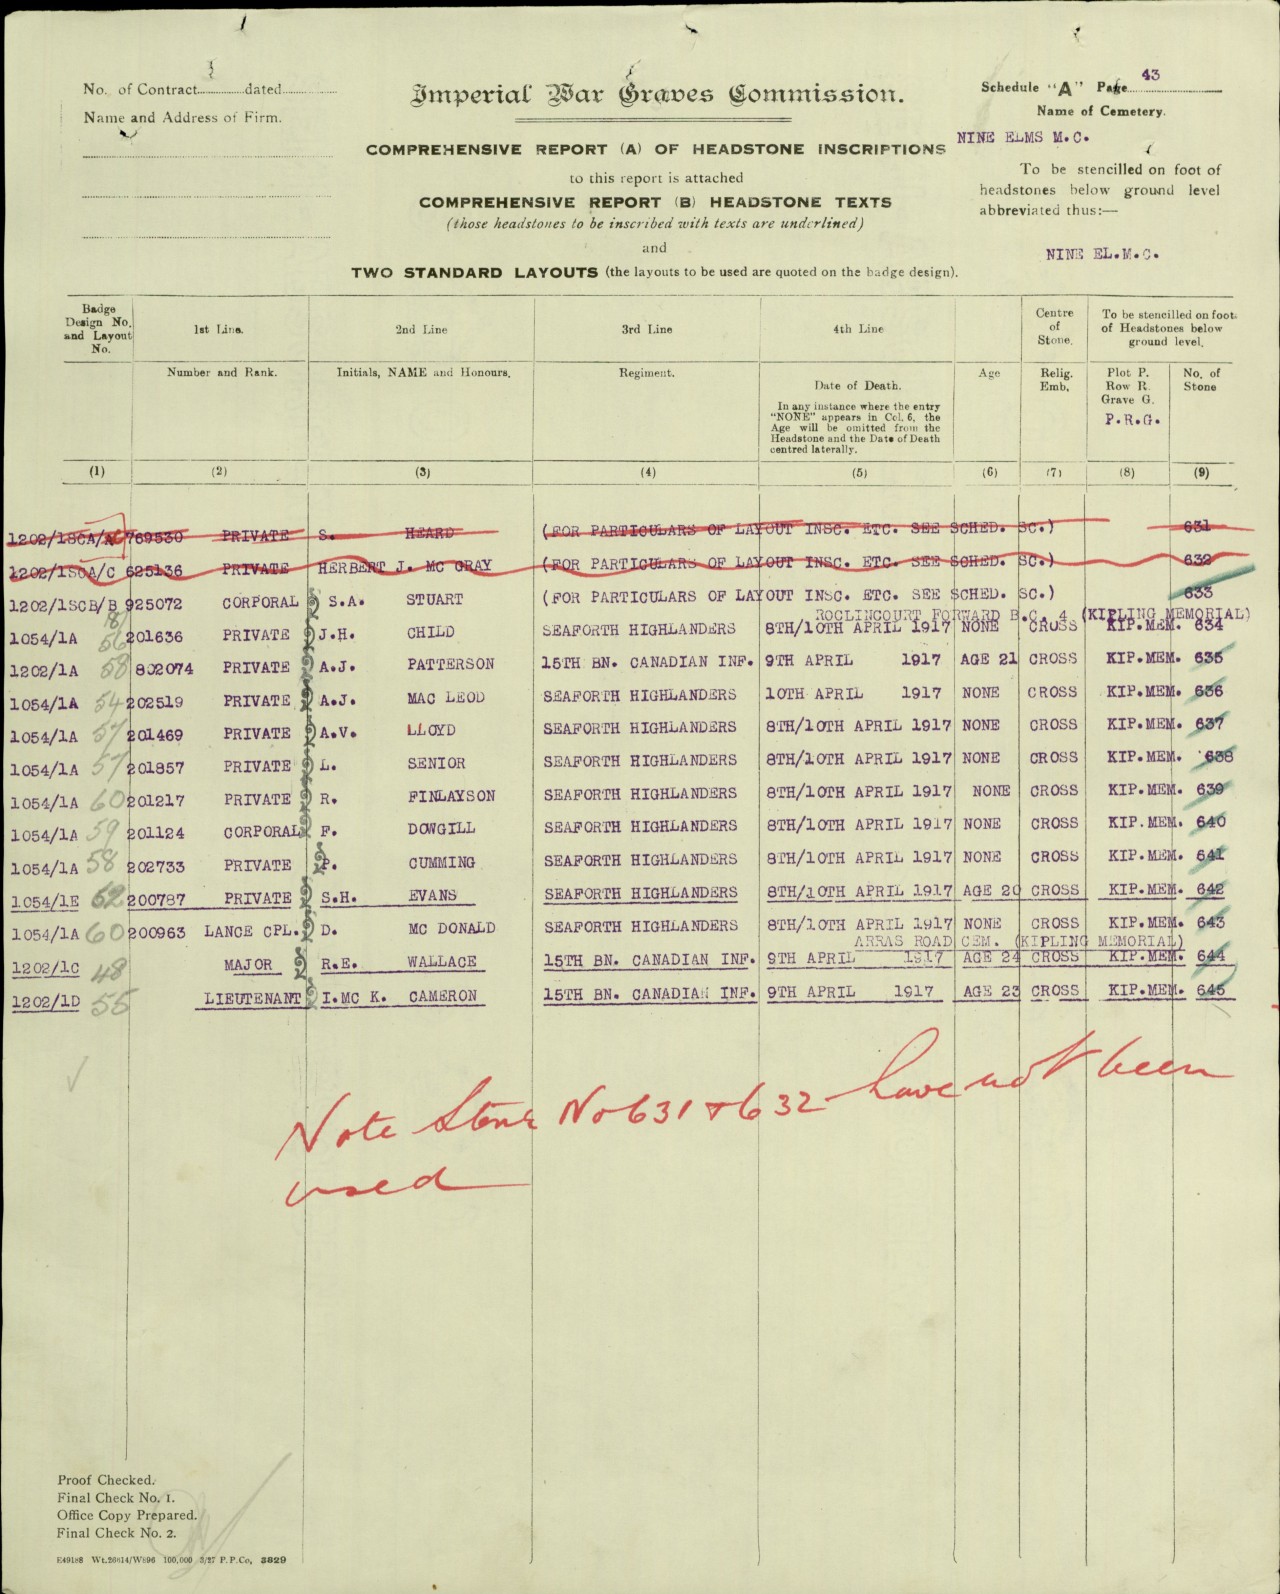 No. of Contract..............dated................
Name and Address of Firm.
Imperial War Graves Commission.
COMPREHENSIVE REPORT (A) OF HEADSTONE INSCRIPTIONS
to this report is attached
COMPREHENSIVE REPORT (B) HEADSTONE TEXTS
(those headstones to be inscribed with texts are underlined)
and
TWO STANDARD LAYOUTS (the layouts to be used are quoted on the badge design).
Schedule "A" Page 43
Name of Cemetery.
NINE ELMS M.C.
To be stencilled on foot of
headstones below ground level
abbreviated thus:—
NINE EL.M.C.
Badge Design No. and Layout No.
1st Line.
2nd Line
3rd Line
4th Line
Centre of Stone.
To be stencilled on foot of Headstones below ground level.
Number and Rank.
Initials, NAME and Honours.
Regiment.
Date of Death.
In any instance where the entry "NONE" appears in Col. 6, the Age will be omitted from the Headstone and the Date of Death centred laterally.
Age
Relig. Emb.
Plot P. Row R. Grave G.
P.R.G.
No. of Stone
(1) (2) (3) (4) (5) (6) (7) (8) (9)
769530 PRIVATE S. HEARD (FOR PARTICULARS OF LAYOUT INSC. ETC. SEE SCHED. SC.) 631
1202/1SCA/C 625136 PRIVATE HERBERT J. MC GRAY (FOR PARTICULARS OF LAYOUT INSC. ETC. SEE SCHED. SC.) 632
1202/1SCB/B 925072 CORPORAL S.A. STUART (FOR PARTICULARS OF LAYOUT INSC. ETC. SEE SCHED. SC.) 633
ROCLINCOURT FORWARD B.C. 4 (KIPLING MEMORIAL)
1054/1A 56 201636 PRIVATE J.H. CHILD SEAFORTH HIGHLANDERS 8TH/10TH APRIL 1917 NONE CROSS KIP.MEM. 634
1202/1A 58 802074 PRIVATE A.J. PATTERSON 15TH BN. CANADIAN INF. 9TH APRIL 1917 AGE 21 CROSS KIP.MEM. 635
1054/1A 54 202519 PRIVATE A.J. MAC LEOD SEAFORTH HIGHLANDERS 10TH APRIL 1917 NONE CROSS KIP.MEM. 636
1054/1A 57 201469 PRIVATE A.V. LLOYD SEAFORTH HIGHLANDERS 8TH/10TH APRIL 1917 NONE CROSS KIP.MEM. 637
1054/1A 57 201857 PRIVATE L. SENIOR SEAFORTH HIGHLANDERS 8TH/10TH APRIL 1917 NONE CROSS KIP.MEM. 638
1054/1A 60 201217 PRIVATE R. FINLAYSON SEAFORTH HIGHLANDERS 8TH/10TH APRIL 1917 NONE CROSS KIP.MEM. 639
1054/1A 59 201124 CORPORAL F. DOWGILL SEAFORTH HIGHLANDERS 8TH/10TH APRIL 1917 NONE CROSS KIP.MEM. 640
1054/1A 58 202733 PRIVATE P. CUMMING SEAFORTH HIGHLANDERS 8TH/10TH APRIL 1917 NONE CROSS KIP.MEM. 641
1054/1E 62 200787 PRIVATE S.H. EVANS SEAFORTH HIGHLANDERS 8TH/10TH APRIL 1917 AGE 20 CROSS KIP.MEM. 642
1054/1A 60 200963 LANCE CPL. D. MC DONALD SEAFORTH HIGHLANDERS 8TH/10TH APRIL 1917 NONE CROSS KIP.MEM. 643
ARRAS ROAD CEM. (KIPLING MEMORIAL)
1202/1C 48 MAJOR R.E. WALLACE 15TH BN. CANADIAN INF. 9TH APRIL 1917 AGE 24 CROSS KIP.MEM. 644
1202/1D 55 LIEUTENANT I.MC K. CAMERON 15TH BN. CANADIAN INF. 9TH APRIL 1917 AGE 23 CROSS KIP.MEM. 645
Note Stone No 631 & 632 have not been
used
Proof Checked.
Final Check No. 1.
Office Copy Prepared.
Final Check No. 2.
E49188 Wt.26614/W896 100,000 3/27 P.P.Co, 3829